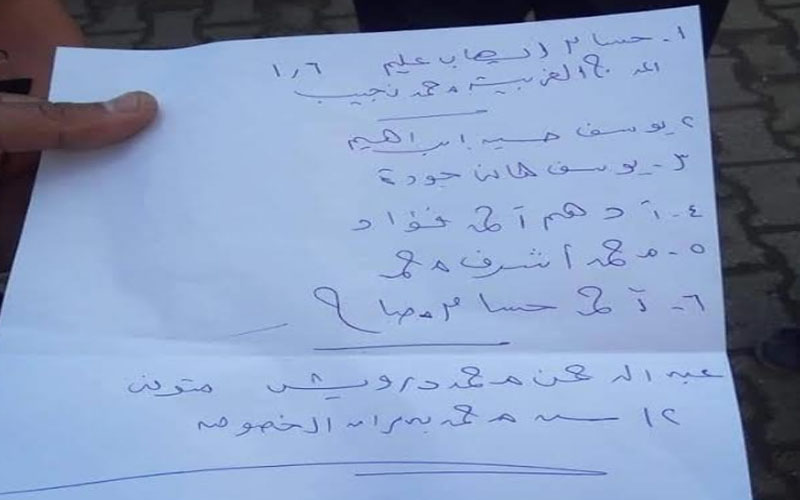 ١- حسام إيهاب عليم ١٫٦
العربية محمد نجيب
٢ يوسف حسين إبراهيم
٣- يوسف هانى جودة
٤- أدهم أحمد فؤاد
٥- محمد أشرف محمد
٦- أحمد حسام
عبد الرحمن محمد درويش متوفى
١٢ سنه محمد بدران الخصوصه